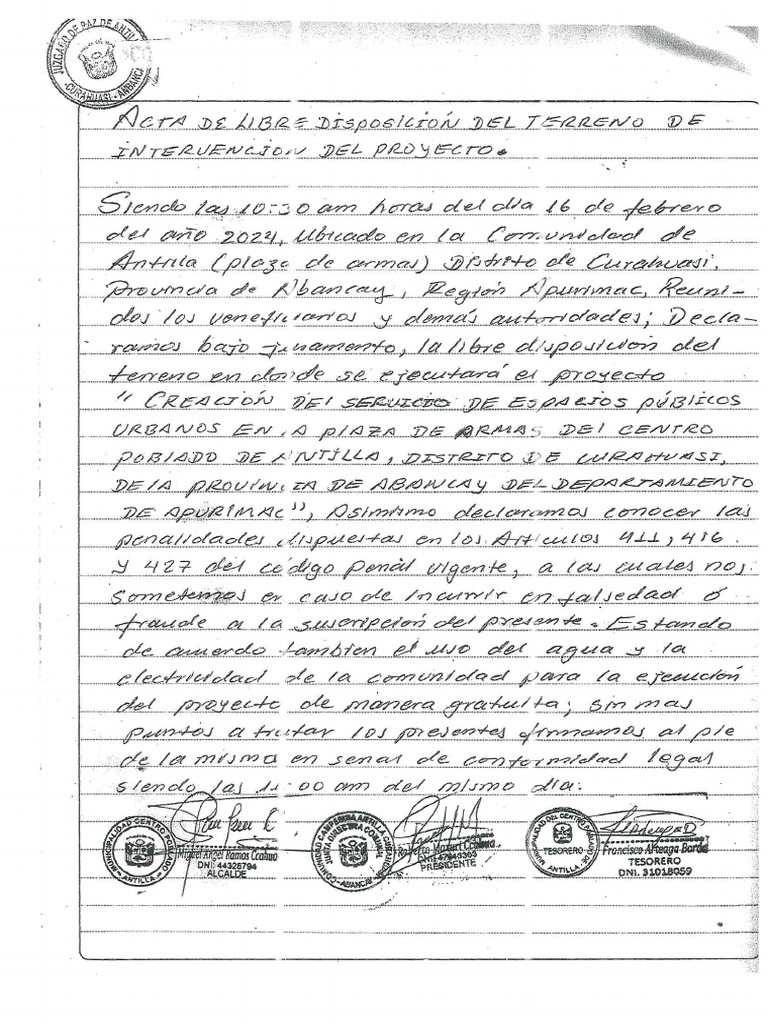 JUZGADO DE PAZ DE ANTILLA
CURAHUASI - ABANCAY
ACTA DE LIBRE DISPOSICIÓN DEL TERRENO DE
INTERVENCION DEL PROYECTO.
Siendo las 10:30 am horas del dia 16 de febrero
del año 2024, Ubicado en la Comunidad de
Antilla (plaza de armas) Distrito de Curahuasi,
provincia de Abancay, Región Apurimac, Reuni-
dos los veneficiarios y demás autoridades; Decla-
ramos bajo juramento, la libre disposición del
terreno en donde se ejecutará el proyecto
" CREACIÓN DEl SERVICIO DE ESPACIOS PÚBLICOS
URBANOS EN LA PLAZA DE ARMAS DEl CENTRO
POBLADO DE ANTILLA, DISTRITO DE CURAHUASI,
DE lA PROVINCIA DE ABANCAY DEL DEPARTAMIENTO
DE APURIMAC", Asimismo declaramos conocer las
penalidades dispuestas en los Articulos 411, 416
y 427 del código penal vigente, a las cuales nos
sometemos en caso de incurrir en falsedad ó
fraude a la suscripción del presente. Estando
de acuerdo tambien el uso del agua y la
electricidad de la comunidad para la ejecución
del proyecto de manera gratuita; sin mas
puntos a tratar los presentes firmamos al pie
de la misma en señal de conformidad legal
siendo las 11:00 am del mismo dia.
MUNICIPALIDAD CENTRO POBLADO
ANTILLA
Miguel Angel Ramos Ccahua
DNI: 44328794
ALCALDE
COMUNIDAD CAMPESINA ANTILLA
JUNTA DIRECTIVA COMUNAL
ABANCAY
Roberto
PRESIDENTE
MUNICIPALIDAD DEL CENTRO POBLADO DE
TESORERO
ANTILLA
Francisco Arteaga Borda
TESORERO
DNI. 31018059